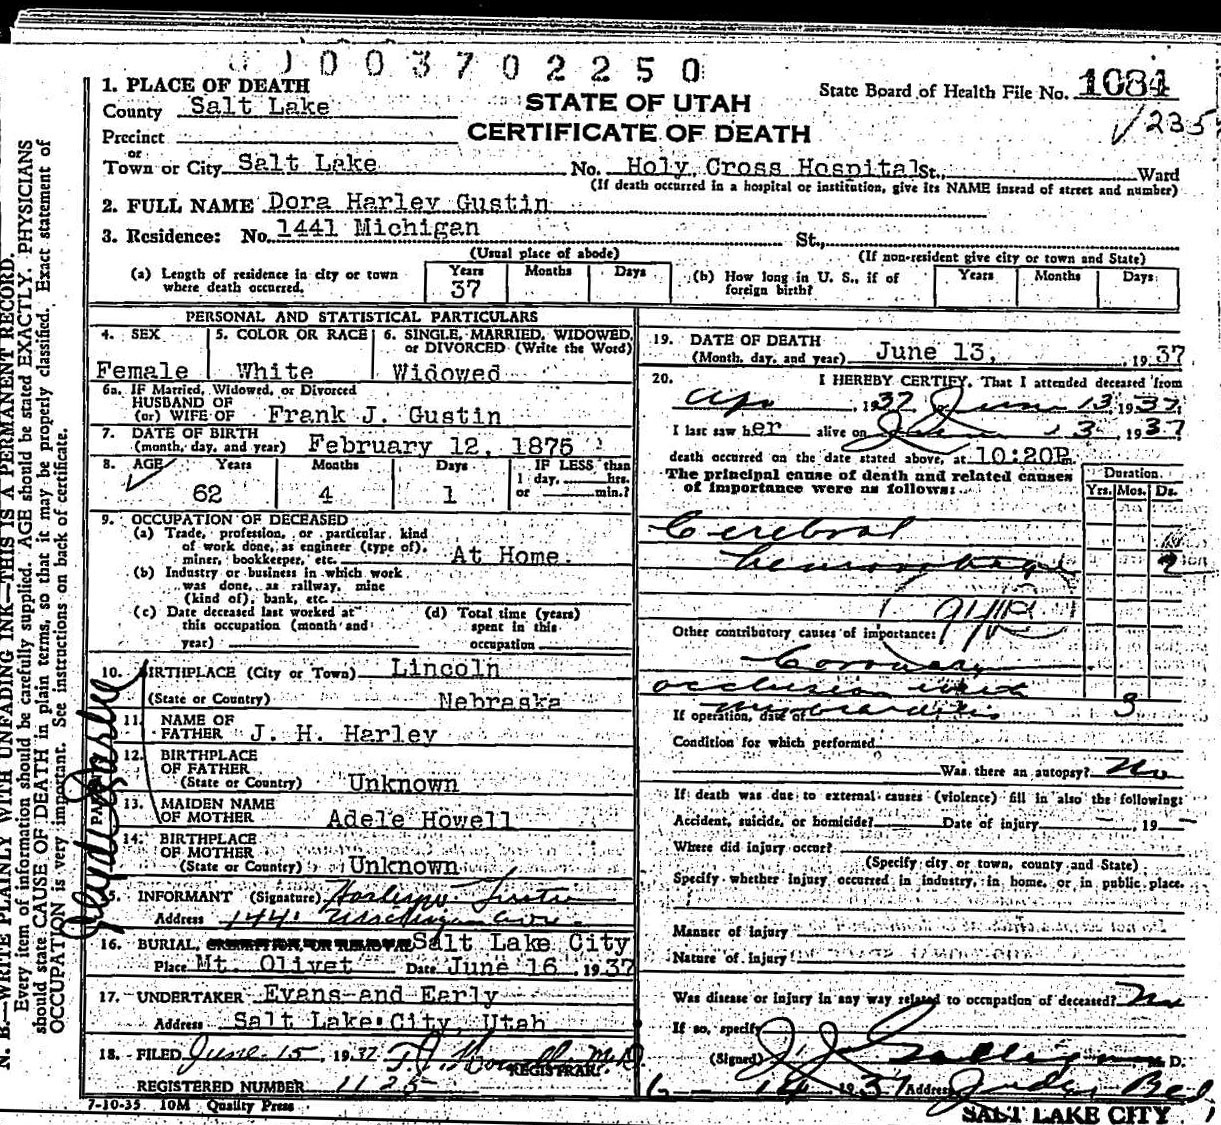 0 0 3 7 0 2 2 5 0
1. PLACE OF DEATH
County Salt Lake
STATE OF UTAH
State Board of Health File No. 1084
Precinct
CERTIFICATE OF DEATH
✓235
or
Town or City Salt Lake No. Holy Cross Hospital St., Ward
(If death occurred in a hospital or institution, give its NAME insead of street and number)
2. FULL NAME Dora Harley Gustin
3. Residence: No. 1441 Michigan St.,
(Usual place of abode) (If non-resident give city or town and State)
(a) Length of residence in city or town where death occurred. Years 37 Months Days
(b) How long in U. S., if of foreign birth? Years Months Days
PERSONAL AND STATISTICAL PARTICULARS
4. SEX 5. COLOR OR RACE 6. SINGLE, MARRIED, WIDOWED, or DIVORCED (Write the Word)
Female White Widowed
6a. IF Married, Widowed, or Divorced
HUSBAND OF
(or) WIFE OF Frank J. Gustin
7. DATE OF BIRTH
(month, day, and year) February 12, 1875
8. AGE Years Months Days IF LESS than
1 day, hrs.
62 4 1 or min.?
9. OCCUPATION OF DECEASED
(a) Trade, profession, or particular kind
of work done, as engineer (type of),
miner, bookkeeper, etc. At Home.
(b) Industry or business in which work
was done, as railway, mine
(kind of), bank, etc.
(c) Date deceased last worked at
this occupation (month and
year)
(d) Total time (years)
spent in this
occupation
10. BIRTHPLACE (City or Town) Lincoln
(State or Country) Nebraska
PARENTS
11. NAME OF
FATHER J. H. Harley
12. BIRTHPLACE
OF FATHER
(State or Country) Unknown
13. MAIDEN NAME
OF MOTHER Adele Howell
14. BIRTHPLACE
OF MOTHER
(State or Country) Unknown
15. INFORMANT (Signature) Harley Gustin
Address 1441 Michigan Ave.
16. BURIAL, Salt Lake City
Place Mt. Olivet Date June 16, 1937
17. UNDERTAKER Evans and Early
Address Salt Lake City, Utah
18. FILED June 15, 1937 M.D.
REGISTRAR.
REGISTERED NUMBER 1125
7-10-35 10M Quality Press
19. DATE OF DEATH
(Month, day, and year) June 13, 1937
20. I HEREBY CERTIFY, That I attended deceased from
Apr 1937 June 13 1937
I last saw her alive on June 13 1937
death occurred on the date stated above, at 10:20P m.
The principal cause of death and related causes
of importance were as follows:
Duration
Yrs. Mos. Ds.
Cerebral
hemorrhage 2
Other contributory causes of importance:
Coronary
occlusion with
myocarditis 3
If operation, date of
Condition for which performed
Was there an autopsy? No
If death was due to external causes (violence) fill in also the following:
Accident, suicide, or homicide? Date of injury , 19
Where did injury occur?
(Specify city or town, county and State)
Specify whether injury occurred in industry, in home, or in public place.
Manner of injury
Nature of injury
Was disease or injury in any way related to occupation of deceased? No
If so, specify
(Signed) J. J. Galligan M. D.
6-14 1937 Address Judge Bld
SALT LAKE CITY
N. B.—WRITE PLAINLY WITH UNFADING INK—THIS IS A PERMANENT RECORD.
Every item of information should be carefully supplied. AGE should be stated EXACTLY. PHYSICIANS
should state CAUSE OF DEATH in plain terms, so that it may be properly classified. Exact statement of
OCCUPATION is very important. See instructions on back of certificate.